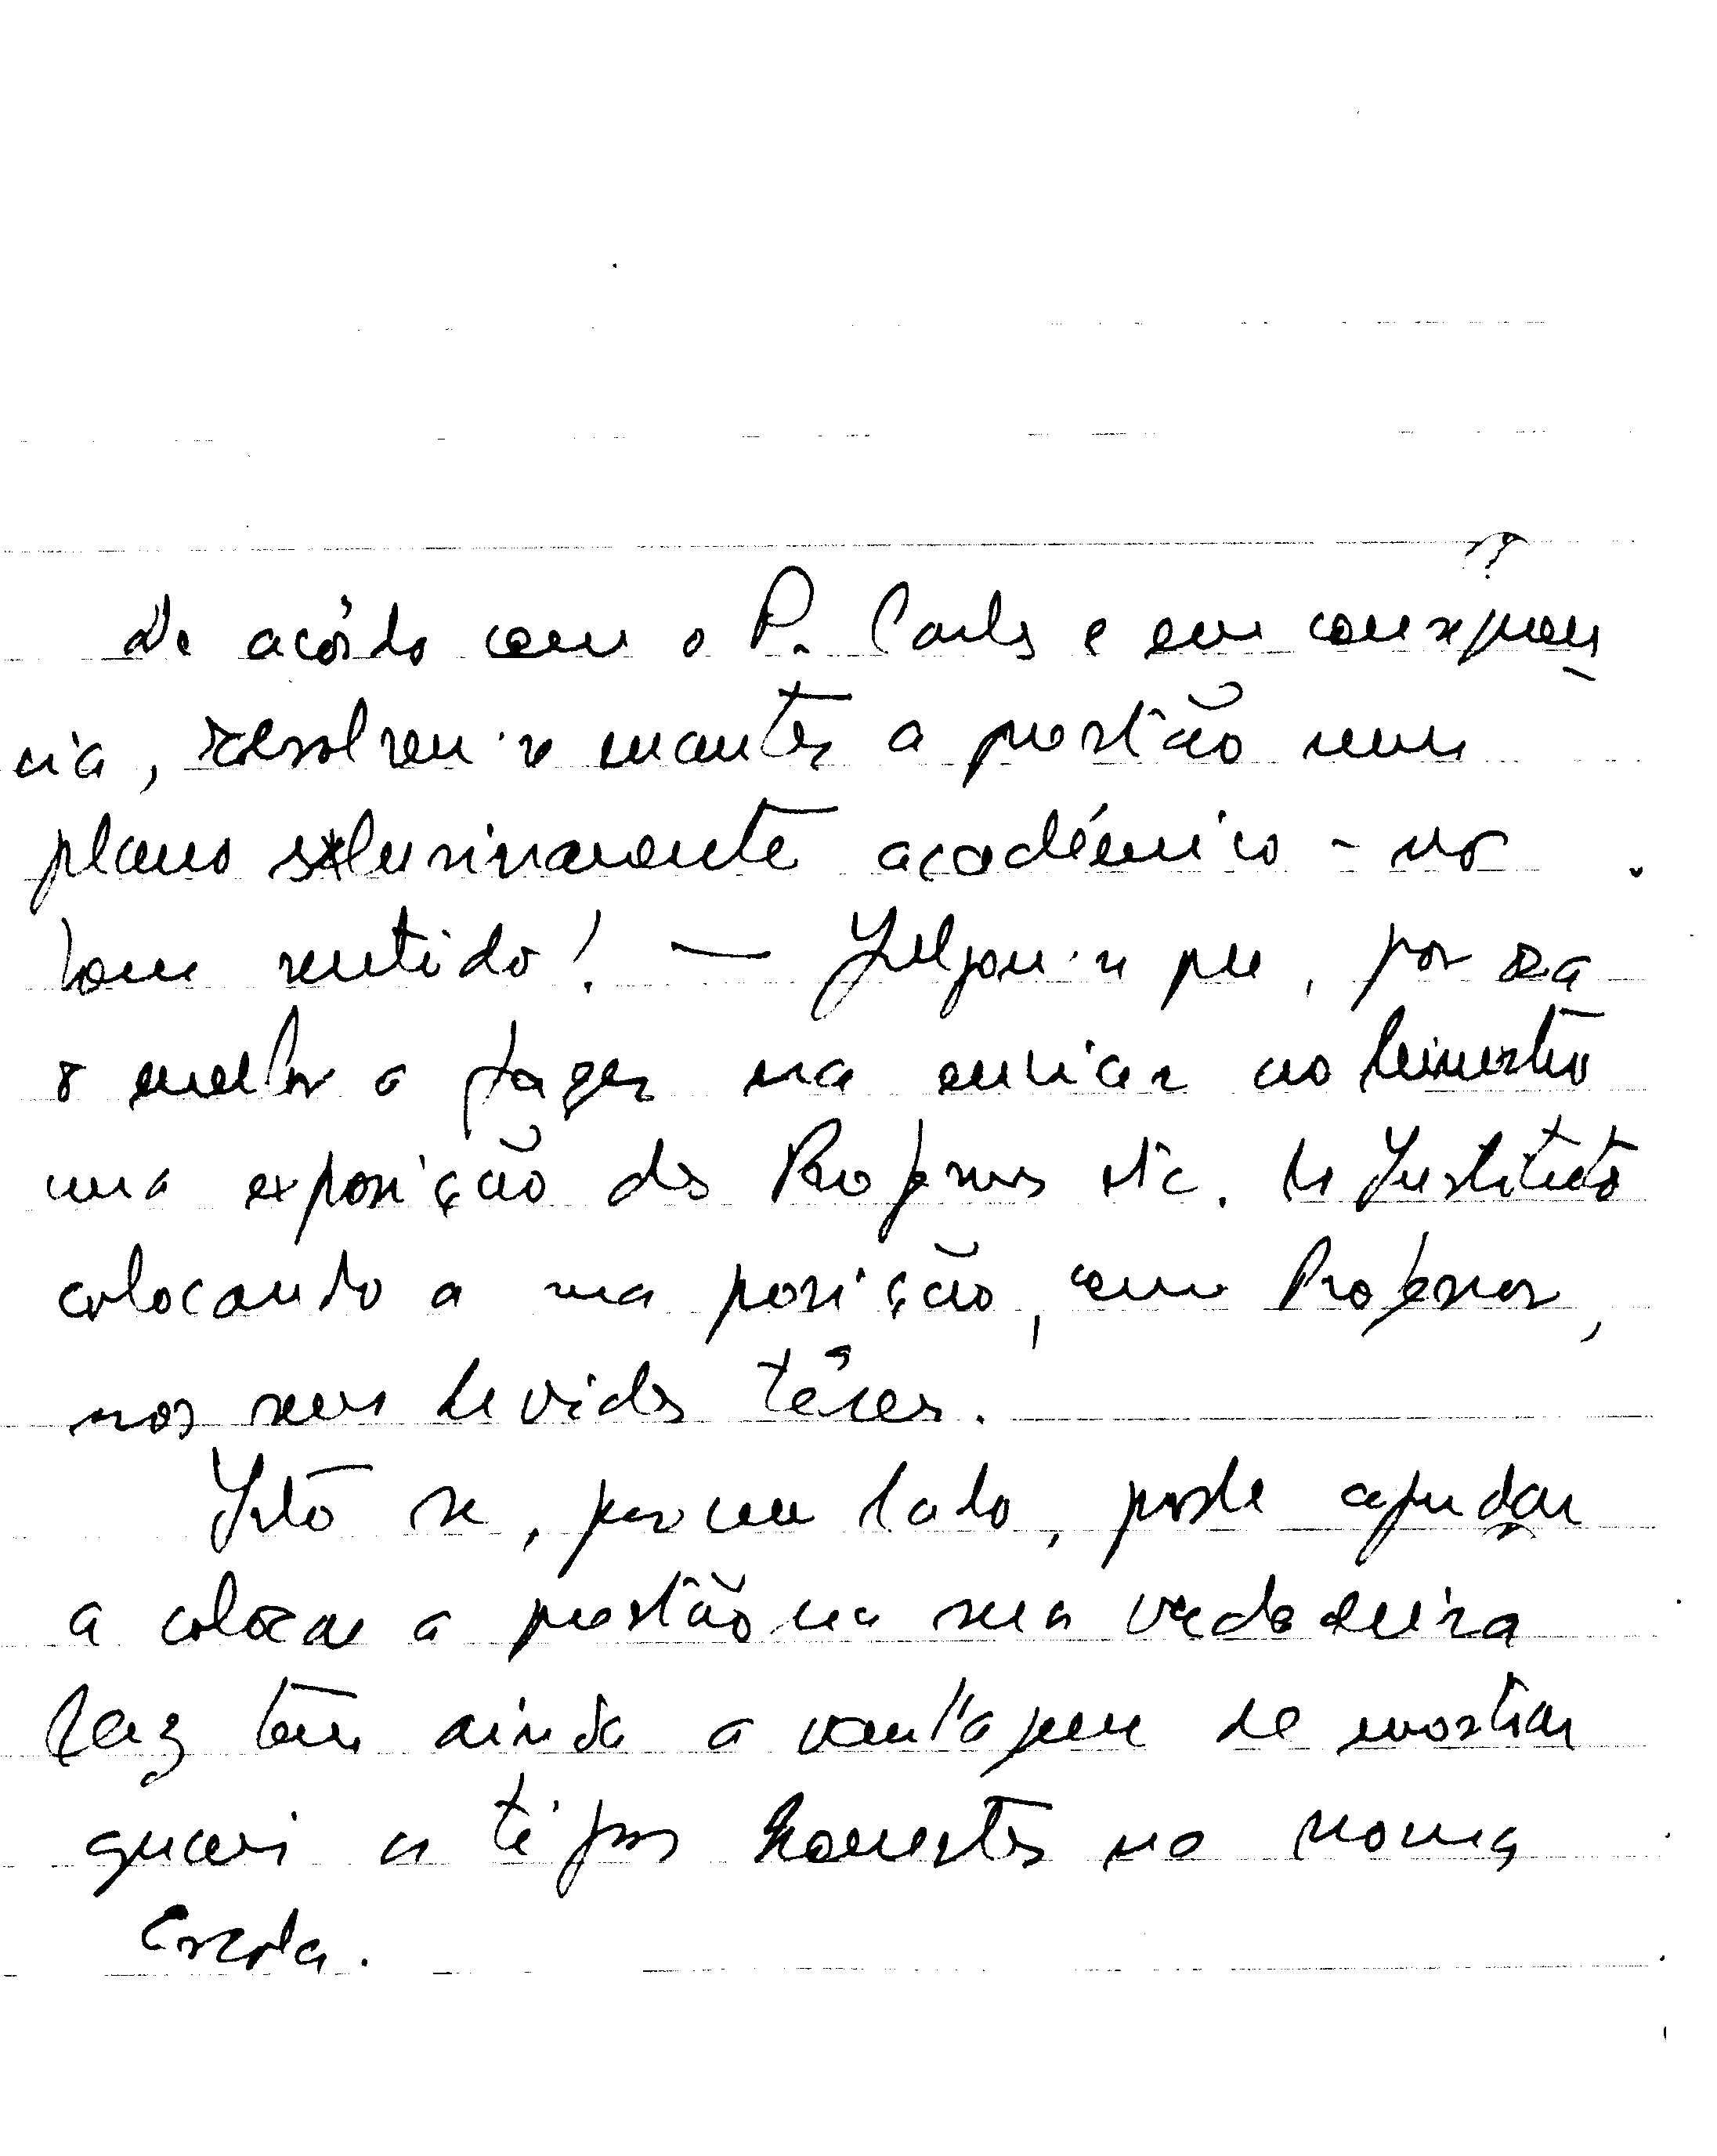 De acôrdo com o P. Carlos e em consequên
cia, resolveu-se manter a questão num
plano exclusivamente académico - no
bom sentido! — Julgou-se que, por ora
o melhor a fazer era enviar ao Ministro
uma exposição dos Professores etc. do Instituto
colocando a sua posição, como Professor,
nos seus devidos têrmos.
Isto se, por um lado, pode ajudar
a colocar a questão na sua verdadeira
luz tem ainda a vantagem de mostrar
quais os tipos honestos na nossa
Escola.